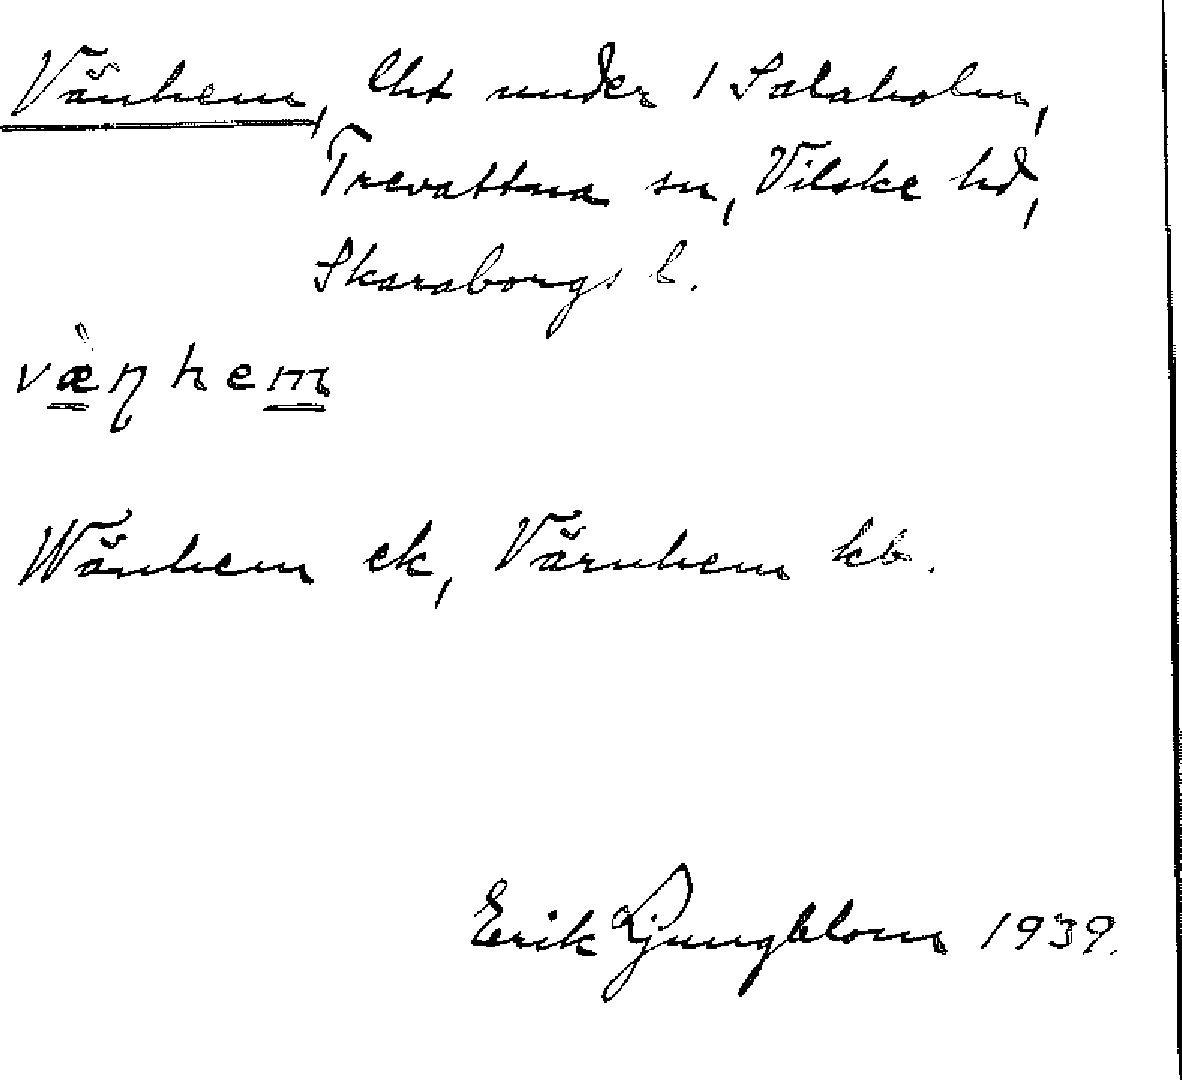 Vänhem, lht under 1 Salaholm,
Trevattna sn, Vilske hd,
Skaraborgs l.
væ̀ηhem
Wänhem ek, Värnhem kb.
Erik Ljungblom 1939.